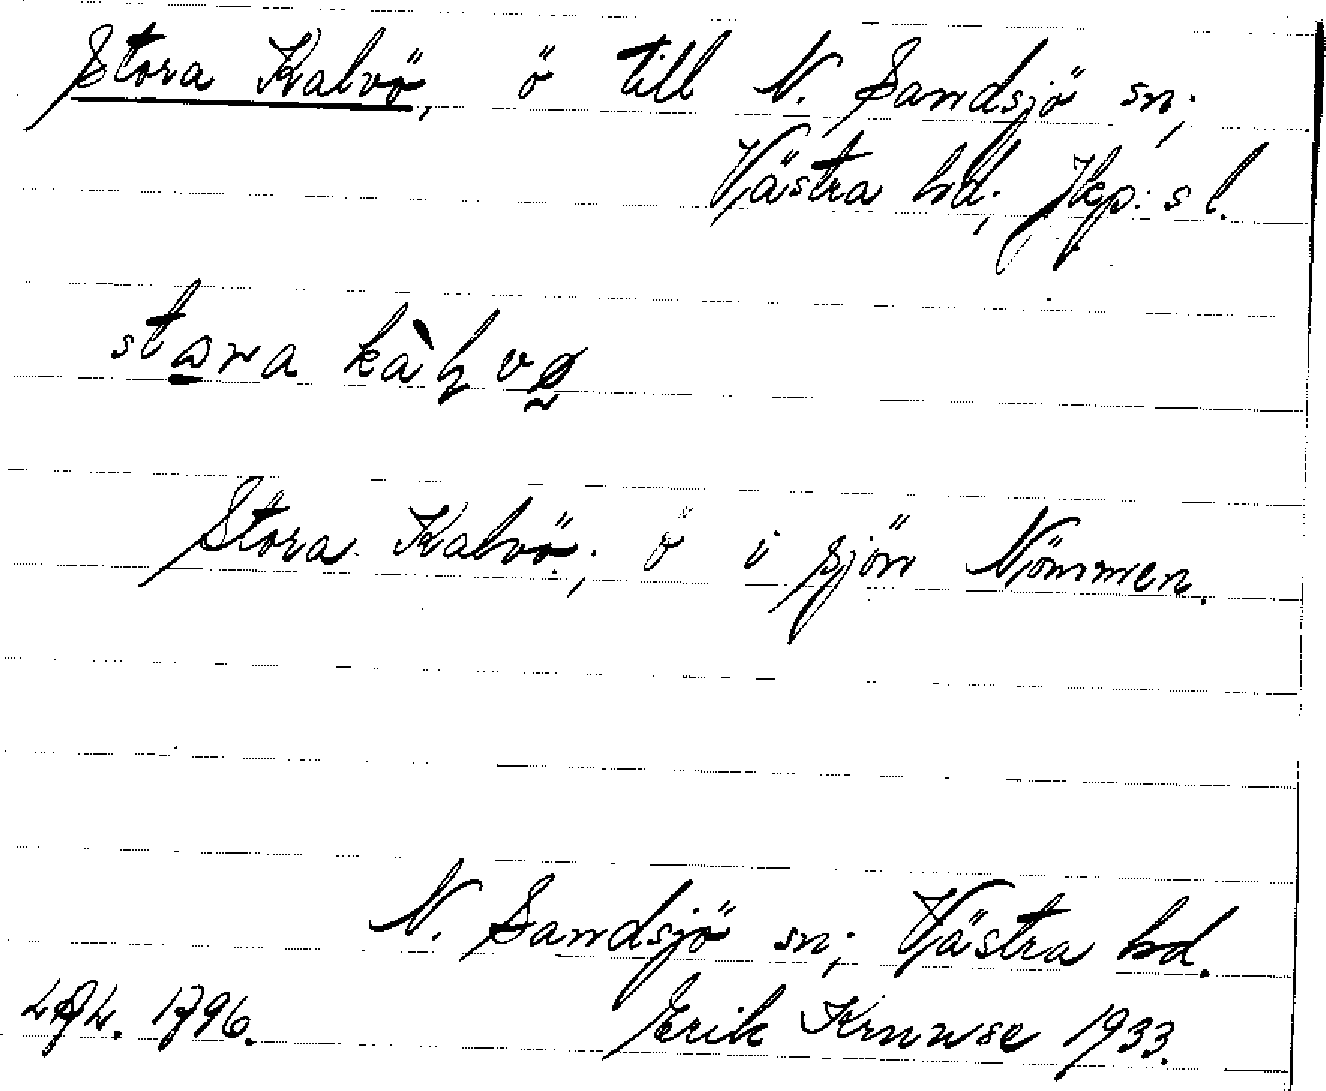 Stora Kalvö, ö till N. Sandsjö sn;
Västra hd; Jkp:s l.
stora kàlvø
Stora Kalvö; ö i sjön Nömmen.
N. Sandsjö sn; Västra hd.
1796. Erik Kruuse 1933.